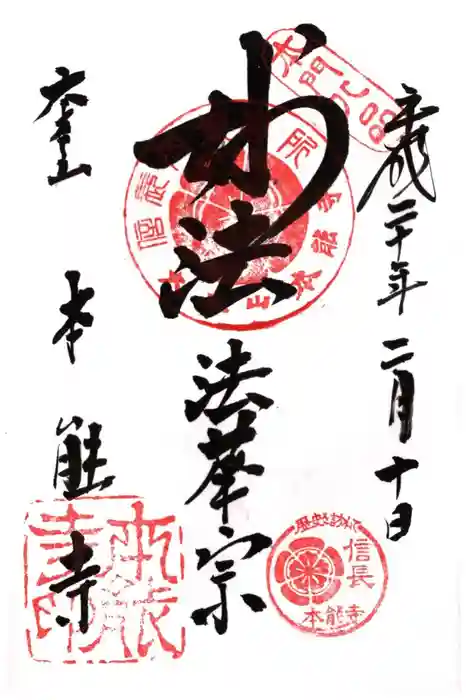 平成二十年二月十日
妙法
法華宗
大本山
本能寺
本門八品
歴史探訪
信長
本能寺
本能寺印